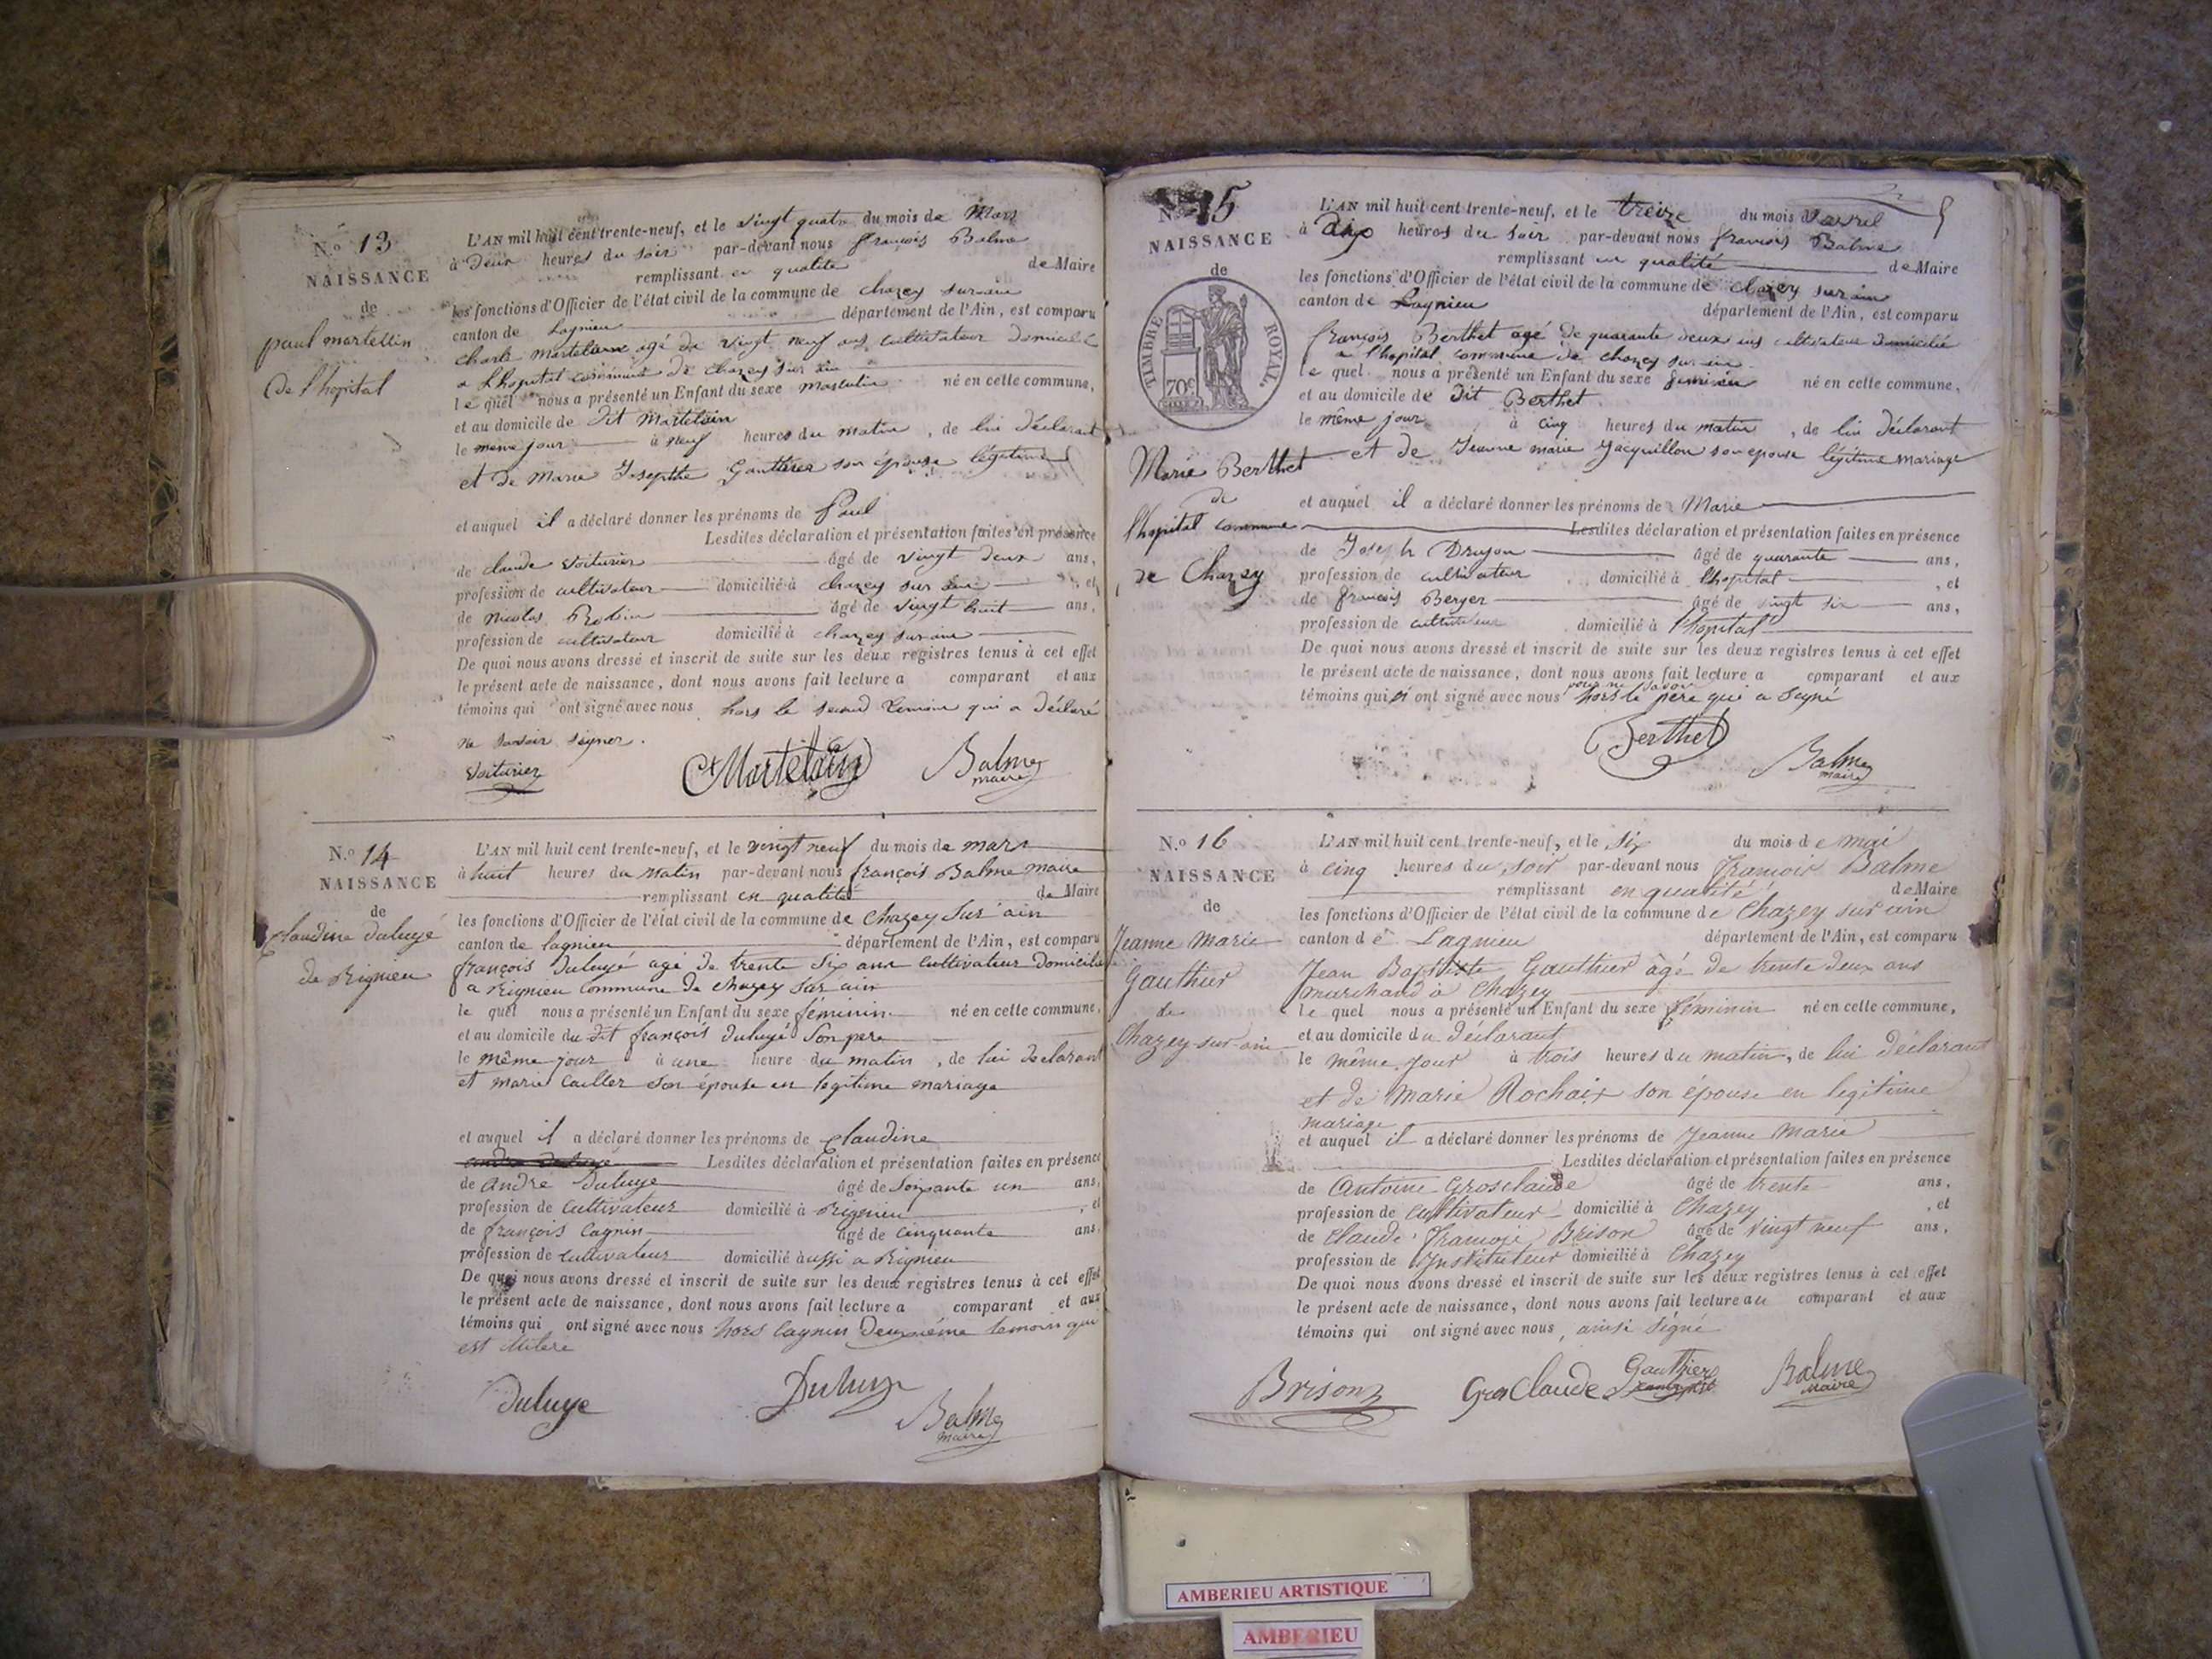 N.o 13
NAISSANCE
de
paul martellin
De l'hopital
L'AN mil huit cent trente-neuf, et le vingt quatre du mois de Mars
à Deux heures du soir par-devant nous françois Balme
remplissant en qualité de Maire
les fonctions d'Officier de l'état civil de la commune de chazey sur ain
canton de Lagnieu département de l'Ain, est comparu
charle Martelain agé de vingt neuf ans cultivateur Domicilié
a L'hopital commune de chazey sur ain
le quel nous a présenté un Enfant du sexe masculin né en cette commune,
et au domicile de Dit Martelain
le meme jour à neuf heures du matin, de lui déclarant
et De Marie Josepthe Gauthier son épouse légitime
et auquel il a déclaré donner les prénoms de Paul
Lesdites déclaration et présentation faites en présence
de claude voiturier âgé de vingt deux ans,
profession de cultivateur domicilié à chazey sur ain et
de nicolas Robin âgé de vingt huit ans,
profession de cultivateur domicilié à chazey sur ain
De quoi nous avons dressé et inscrit de suite sur les deux registres tenus à cet effet
le présent acte de naissance, dont nous avons fait lecture a comparant et aux
témoins qui ont signé avec nous hors le second temoin qui a déclaré
ne savoir signer.
voiturier CMartelain Balme
maire
N.o 14
NAISSANCE
de
Claudine duluyé
de Rignieu
L'AN mil huit cent trente-neuf, et le vingt neuf du mois de mars
à huit heures du matin par-devant nous françois Balme maire
remplissant en qualité de Maire
les fonctions d'Officier de l'état civil de la commune de Chazey Sur ain
canton de lagnieu département de l'Ain, est comparu
françois duluyé agé de trente Six ans Cultivateur Domicilié
a Rignieu Commune de chazey Sur ain
le quel nous a présenté un Enfant du sexe féminin né en cette commune,
et au domicile du dit françois duluyé Son pere
le même jour à une heure du matin, de lui déclarant
et marie Cailler Son épouse en legitime mariage
et auquel il a déclaré donner les prénoms de Claudine
Lesdites déclaration et présentation faites en présence
de André Duluye âgé de Soixante un ans,
profession de Cultivateur domicilié à Rignieu, et
de françois Cagnin âgé de Cinquante ans,
profession de Cultivateur domicilié aussi a Rignieu
De quoi nous avons dressé et inscrit de suite sur les deux registres tenus à cet effet
le présent acte de naissance, dont nous avons fait lecture a comparant et aux
témoins qui ont signé avec nous hors Cagnin Deuxiéme temoin qui
est illitére
Duluye Duluye Balme
maire
N.o 15
NAISSANCE
de
TIMBRE ROYAL.
70c
Marie Berthet
de
l'hopital commune
de Chazey
L'AN mil huit cent trente-neuf, et le treize du mois d'avril
à Dix heures du soir par-devant nous françois Balme
remplissant en qualité de Maire
les fonctions d'Officier de l'état civil de la commune de chazey sur ain
canton de Lagnieu département de l'Ain, est comparu
françois Berthet agé De quarante deux ans cultivateur Domicilié
a l'hopital commune de chazey sur ain
le quel nous a présenté un Enfant du sexe feminin né en cette commune,
et au domicile de Dit Berthet
le même jour à cinq heures du matin, de lui Déclarant
et de Jeanne marie Jacquillon son epouse légitime mariage
et auquel il a déclaré donner les prénoms de Marie
Lesdites déclaration et présentation faites en présence
de Joseph Drujon âgé de quarante ans,
profession de cultivateur domicilié à l'hopital, et
de françois Berger âgé de vingt six ans,
profession de cultivateur domicilié à l'hopital
De quoi nous avons dressé et inscrit de suite sur les deux registres tenus à cet effet
le présent acte de naissance, dont nous avons fait lecture a comparant et aux
témoins qui ont signé avec nous pour ne savoir hors le père qui a signé
Berthet Balme
maire
N.o 16
NAISSANCE
de
Jeanne Marie
Gauthier
de
Chazey-sur-ain
L'AN mil huit cent trente-neuf, et le Six du mois de mai
à cinq heures du soir par-devant nous françois Balme
remplissant en qualité de Maire
les fonctions d'Officier de l'état civil de la commune de Chazey sur ain
canton de Lagnieu département de l'Ain, est comparu
Jean Baptiste Gauthier âgé de trente deux ans
marchand à Chazey
le quel nous a présenté un Enfant du sexe féminin né en cette commune,
et au domicile du déclarant
le même jour à trois heures du matin, de lui déclarant
et de Marie Rochaix son épouse en legitime
mariage
et auquel il a déclaré donner les prénoms de Jeanne Marie
Lesdites déclaration et présentation faites en présence
de Antoine Grosclaude âgé de trente ans,
profession de Cultivateur domicilié à Chazey, et
de Claude françois Brison âgé de vingt neuf ans,
profession de Instituteur domicilié à Chazey
De quoi nous avons dressé et inscrit de suite sur les deux registres tenus à cet effet
le présent acte de naissance, dont nous avons fait lecture au comparant et aux
témoins qui ont signé avec nous, ainsi signé
Brison GrosClaude Gauthier Balme
Maire
AMBERIEU ARTISTIQUE
AMBERIEU